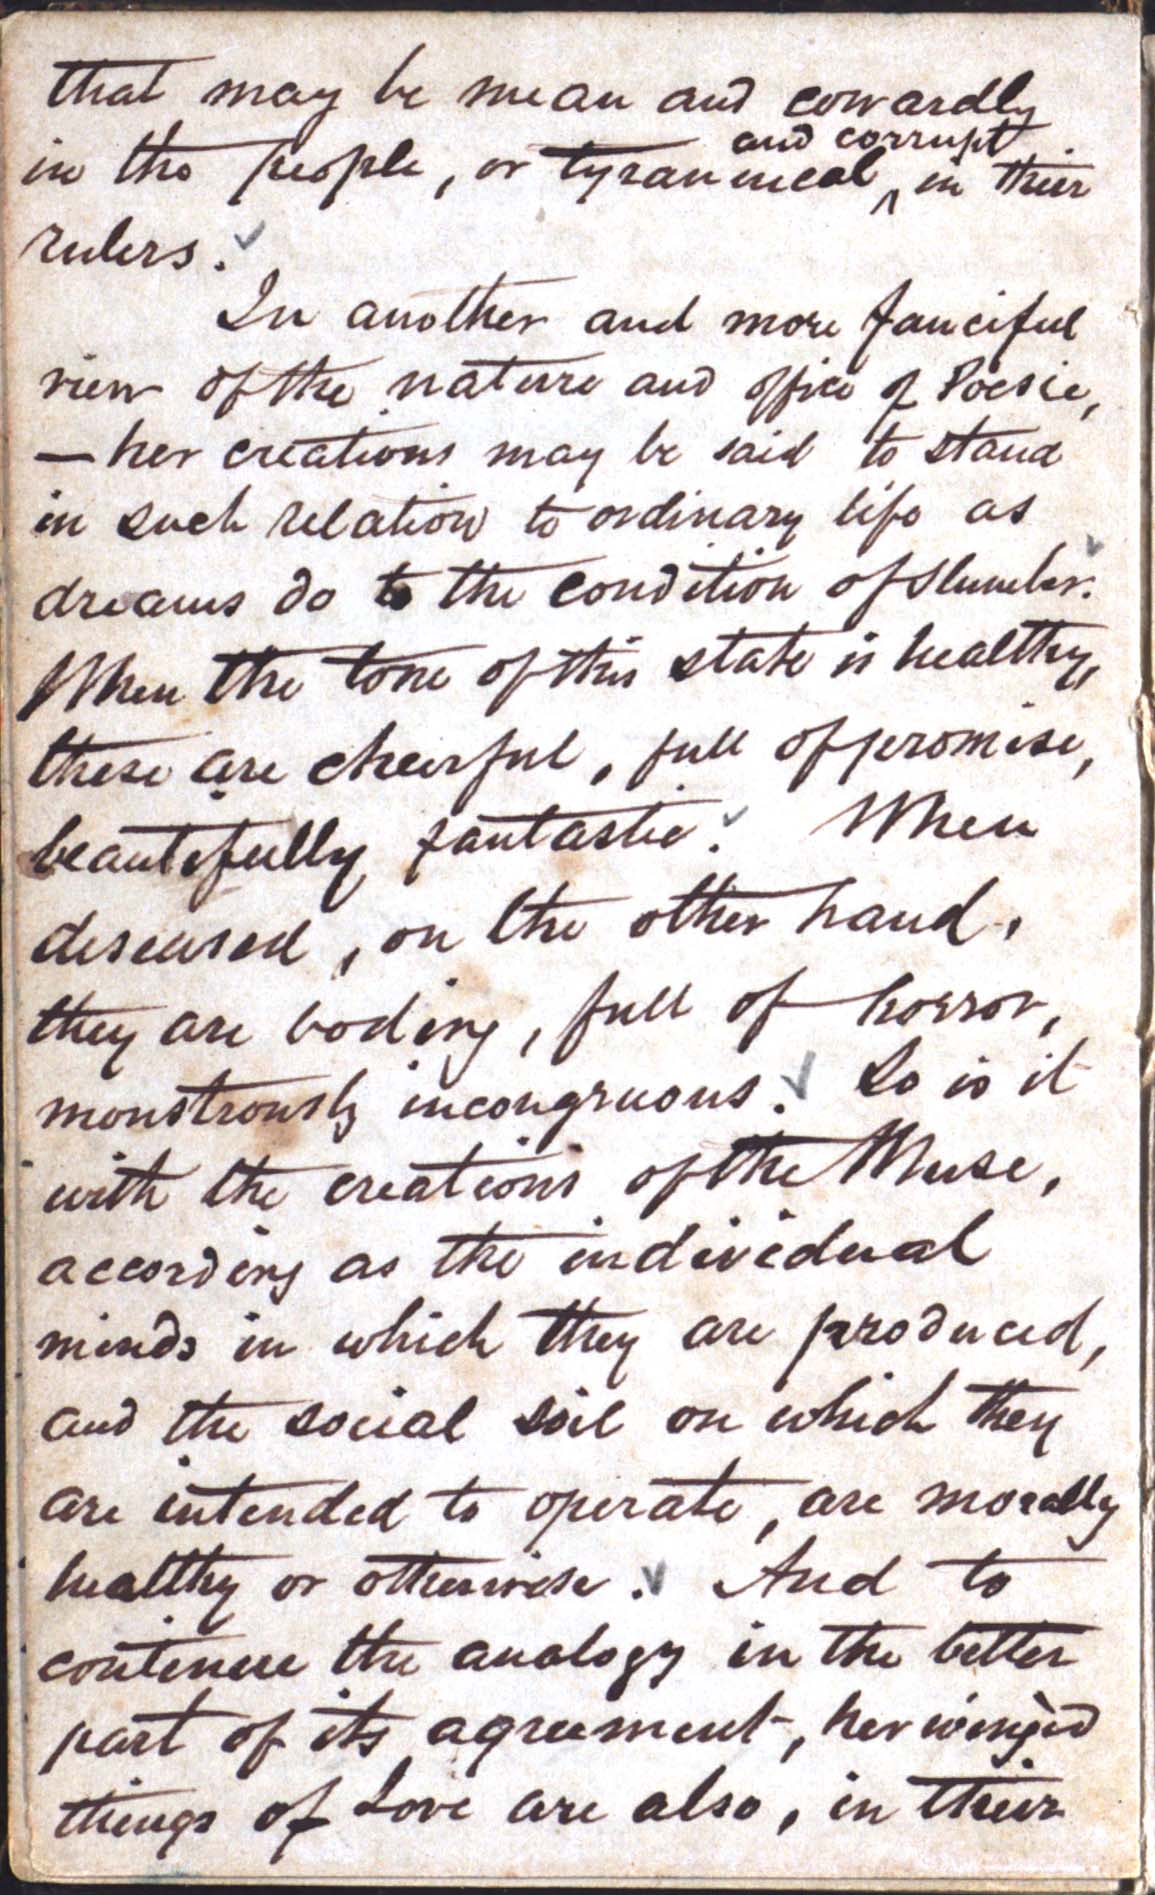 that may be mean and cowardly
and corrupt
in the people, or tyrannical ^ in their
rulers.
In another and more fanciful
view of the nature and office of Poesie,
— her creations may be said to stand
in such relation to ordinary life as
dreams do to the condition of slumber.
When the tone of this state is healthy,
these are cheerful, full of promise,
beautifully fantastic. When
diseased, on the other hand,
they are boding, full of horror,
monstrously incongruous. So is it
with the creations of the Muse,
according as the individual
minds in which they are produced,
and the social soil on which they
are intended to operate, are morally
healthy or otherwise. And to
continue the analogy in the better
part of its agreement, her wingèd
things of Love are also, in their